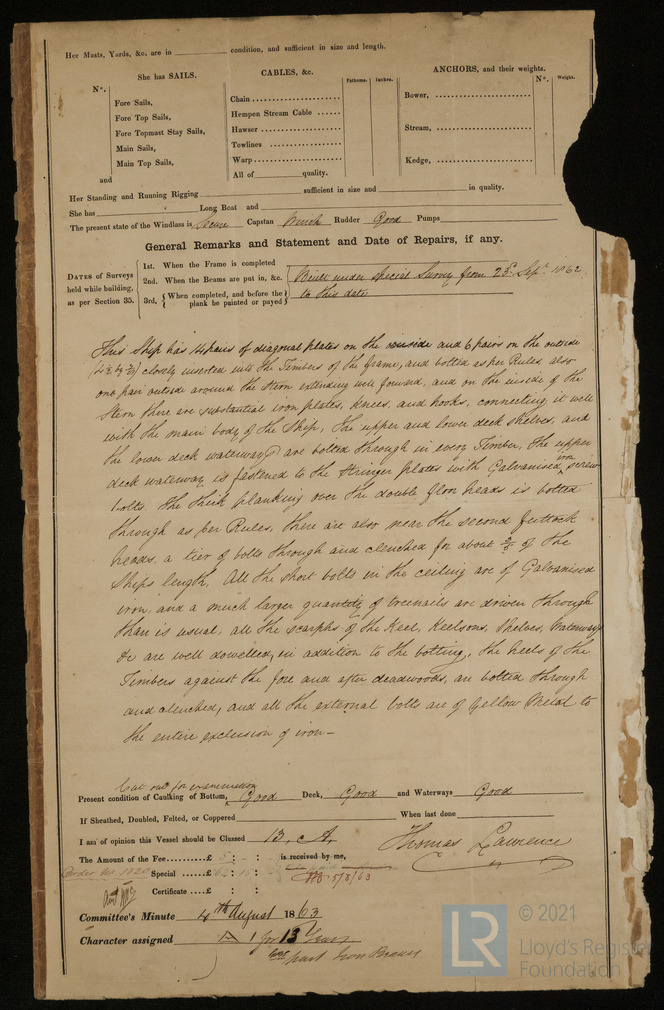 Her Masts, Yards, &c. are in condition, and sufficient in size and length.
She has SAILS.
CABLES, &c.
ANCHORS, and their weights.
N°.
Fathoms. Inches.
N°. Weight.
Fore Sails,
Fore Top Sails,
Fore Topmast Stay Sails,
Main Sails,
Main Top Sails,
and
Chain
Hempen Stream Cable
Hawser
Towlines
Warp
All of quality.
Bower,
Stream,
Kedge,
Her Standing and Running Rigging sufficient in size and in quality.
She has Long Boat and
The present state of the Windlass is Secure Capstan Winch Rudder Good Pumps
General Remarks and Statement and Date of Repairs, if any.
DATES of Surveys held while building, as per Section 35.
1st. When the Frame is completed
2nd. When the Beams are put in, &c.
3rd, { When completed, and before the plank be painted or payed }
Built under Special Survey from 23rd Sepr 1862
to this date
This Ship has 14 pairs of diagonal plates on the inside and 6 pairs on the outside
closely inserted into the Timbers of the frame, and bolted as per Rules, also
one pair outside around the Stern extending well forward, and on the inside of the
Stern there are substantial iron plates, knees, and hooks, connecting it well
with the main body of the Ship, The upper and lower deck shelves, and
the lower deck waterways are bolted through in every Timber, The upper
deck waterway is fastened to the Stringer plates with Galvanised iron screw
bolts the thick planking over the double floor heads is bolted
through as per Rules, there are also near the second futtock
heads, a tier of bolts through and clenched for about 3/5 of the
Ships length, All the short bolts in the ceiling are of Galvanised
iron, and a much larger quantity of treenails are driven through
than is usual, all the scarphs of the Keel, Keelsons, Shelves, Waterways
&c are well dowelled, in addition to the bolting, the heels of the
Timbers against the fore and after deadwoods, are bolted through
and clenched, and all the external bolts are of Yellow Metal to
the entire exclusion of iron—
Cut out for examination
Present condition of Caulking of Bottom, Good Deck, Good and Waterways Good
If Sheathed, Doubled, Felted, or Coppered When last done
I am of opinion this Vessel should be Classed 13, A, Thomas Lawrence
The Amount of the Fee £ 5 : - : is received by me,
Special £ : :
5/8/63
Certificate £ : :
Committee's Minute 4th August 1863
Character assigned A 1 for 13 Years
part Iron Beams
LR © 2021
Lloyd's Register
Foundation